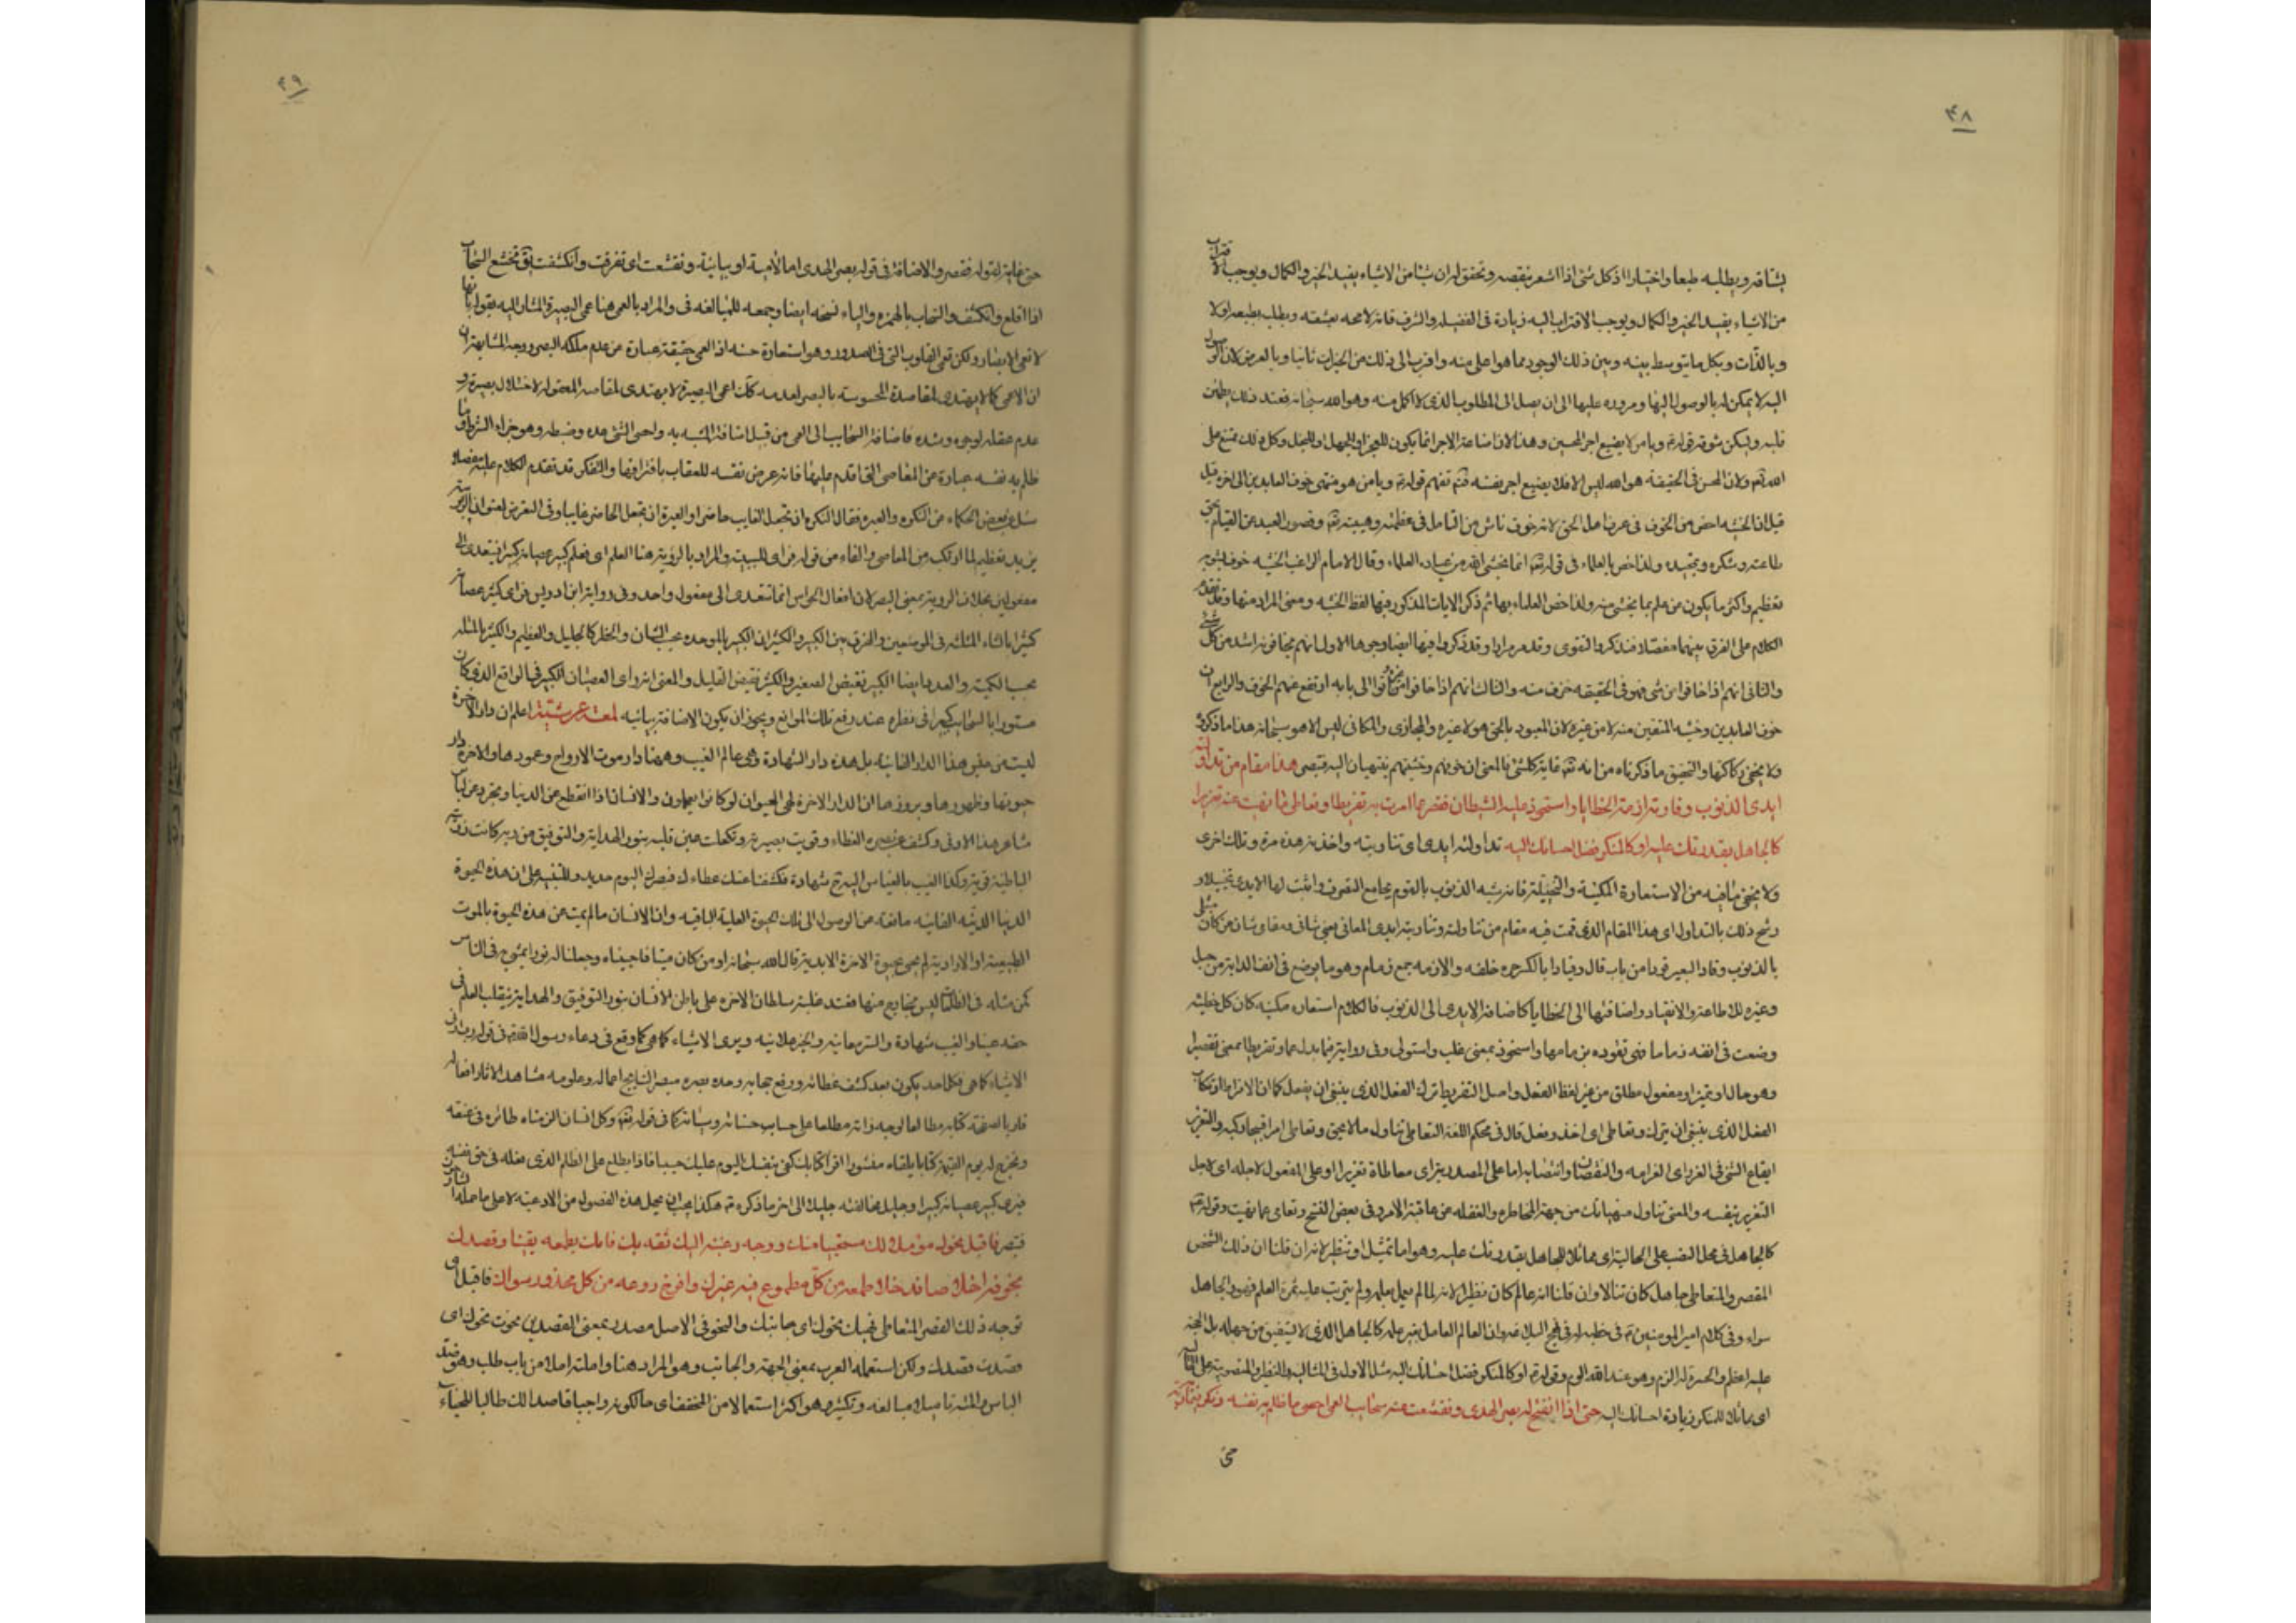 ٣٨
يشتاقه ويطلبه طبعا واختيارا اذ كل شئ اذا استشعر بنقصه وتحقق له ان شيئا من الاشياء يفيد الخير والكمال ويوجب الاقتراب
من الاشياء يفيد الخير والكمال ويوجب الاقتراب اليه زيادة فى الفضيلة والشرف فانه لا محه يعشقه ويطلبه بطبعه اولا
وبالذات وبكل ما يتوسط بينه وبين ذلك الوجود مما هو اعلى منه واقرب الى ذلك من الخيرات ثانيا وبالعرض لان الوصول
اليه لا يمكن له بالوصول اليها ومروره عليها الى ان يصل الى المطلوب الذى لا اكمل منه وهو الله سبحانه فعند ذلك يطمئن
قلبه ويسكن شوقه قوله ويا من لا يضيع اجر المحسنين وهذا لان اضاعة الاجر انما يكون للعجز او الجهل او البخل وكل ذلك ممتنع على
الله تعم ولان المحسن فى الحقيقة هو الله ليس الا فلا يضيع اجر نفسه فتم تفهم قوله ويا من هو منتهى خوف العابدين الى اخره قيل
قيل ان الخشية اخص من الخوف فى عرف اهل الحق لانه خوف ناش من التامل فى عظمته وهيبته تعم وقصور العبد عن القيام بحق
طاعته وشكره وتمجيده ولذا خص بالعلماء فى قوله تعم انما يخشى الله من عباده العلماء وقال الامام الراغب الخشية خوف يشوبه
تعظيم واكثر ما يكون عن علم بما يخشى منه ولذا خص العلماء بها ثم ذكر الايات المذكور فيها لفظ الخشية ومعنى المراد منها وقد تقدم
الكلام على الفرق بينهما مفصلا فتذكر والتقوى وقد مر مرارا وقد ذكروا فيها ايضا وجوها الاول انهم يخافونه اشد من كل شئ
والثانى انهم اذا خافوا من شئ فهو فى الحقيقة خوف منه والثالث انهم اذا خافوا منه والتجؤا الى بابه ارتفع عنهم الخوف والرابع ان
خوف العابدين وخشية المتقين منه لا من غيره لان المعبود بالحق هو لا غيره والمجازى والمكافى ليس الا هو سبحانه هذا ما ذكروه
ولا يخفى ركاكتها والتحقيق ما ذكرناه من انه تعم غاية كل شئ بالمعنى ان خوفهم وخشيتهم ينتهيان اليه فتبصر هذا مقام من تداولته
ايدى الذنوب وقادته ازمة الخطايا واستحوذ عليه الشيطان فقصر عما امرت به تفريطا وتعاطى ما نهيت عنه تغريرا
كالجاهل بقدرتك عليه او كالمنكر فضل احسانك اليه تداولته ايدى اى تناوبته واخذته هذه مرة وتلك اخرى
ولا يخفى ما فيه من الاستعارة المكنية والتخييلية فانه شبه الذنوب بالقوم بجامع التصرف واثبت لها الايدى تخييلا و
رشح ذلك بالتداول اى هذا المقام الذى قمت فيه مقام من تناولته وتناوبته ايدى المعاصى فمعنى شانى ومقامى شان من كان مبتلى
بالذنوب وقاد البعير قودا من باب قال وقيادا بالكسر جره خلفه والازمة جمع زمام وهو ما يوضع فى انف الدابة من حبل
وغيره للاطاعة والانقياد واضافتها الى الخطايا كاضافة الايدى الى الذنوب فالكلام استعارة مكنية كان كل خطيئة
وضعت فى انفه زماما فهى تقوده بزمامها واستحوذ بمعنى غلب واستولى وفى رواية فيما بدل عما وتفريطا بمعنى تقصيرا
وهو حال او تميز او مفعول مطلق من غير لفظ الفعل واصل التفريط ترك الفعل الذى ينبغى ان يفعل كما ان الافراط ارتكاب
الفعل الذى ينبغى ان يترك وتعاطى اى اخذ وفعل قال فى محكم اللغة التعاطى تناول ما لا يحق وتعاطى امرا قبيحا ركبه والتغرير
ايقاع الشئ فى الغرر اى الغرامة والنقصان وانتصابه اما على المصدرية اى معاطاة تغريرا او على المفعول لاجله اى لاجل
التغرير بنفسه والمعنى تناول منهياتك من جهة المخاطرة والغفلة عن عاقبة الامر وفى بعض النسخ وتعامى عما نهيت وقوله
كالجاهل فى محل النصب على الحالية اى مماثلا للجاهل بقدرتك عليه وهو اما تمثيل او تنظير لانه ان قلنا ان ذلك الشخص
المقصر والمتعاطى جاهل كان مثالا وان قلنا انه عالم كان نظيرا لانه لما لم يعمل بعلمه ولم يترتب عليه ثمرة العلم فهو والجاهل
سواء وفى كلام امير المؤمنين فى خطبة له فى نهج البلاغة وان العالم العامل بغير علمه كالجاهل الذى لا يستفيق من جهله بل الحجة
عليه اعظم والحسرة له الزم وهو عند الله الوم وقوله او كالمنكر فضل احسانك اليه مثل الاول فى المثالية والنظيرية والمنصوبية على الحالية
اى مماثلا للمنكر زيادة احسانك اليه حتى اذا انفتح له بصر الهدى وتقشعت عنه سحائب العمى احصى ما ظلم به نفسه وفكر فيما
حتى
٣٩
حتى غاية لقوله فقصر والاضافة فى قوله بصر الهدى اما لامية او بيانية وتقشعت اى تفرقت وانكشفت يق تقشع السحاب
اذا اقلع وانكشف والسحاب بالهمزة والياء نسخة ايضا وجمعه للمبالغة فى والمراد بالعمى هنا عمى البصيرة المشار اليه بقوله فانها
لا تعمى الابصار ولكن تعمى القلوب التى فى الصدور وهو استعارة حسنة اذ العمى حقيقة عبارة عن عدم ملكة البصر ووجه المشابهة ان
ان الاعمى كما لا يهتدى لمقاصده المحسوسة بالبصر لعدمه كك اعمى البصيرة لا يهتدى لمقاصده المعقولة لاختلال بصيرته و
عدم عقله لوجوه رشده فاضافة السحائب الى العمى من قبيل اضافة المشبه به واحصى الشئ عده وضبطه وهو جزاء الشرط وما
ظلم به نفسه عبارة عن المعاصى التى اقدم عليها فانه عرض نفسه للعقاب باقترافها والتفكر قد تقدم الكلام عليه مفصلا
سئل بعض الحكماء عن الفكرة والعبرة فقال الفكرة ان تجعل الغايب حاضرا والعبرة ان تجعل الحاضر غايبا وفى التعرض لعنوان الربوبية
مزيد تعظيم لما ارتكب من المعاصى والفاء من قوله فراى للسببية والمراد بالرؤية هنا العلم اى فعلم كبير عصيانه كبيرا فيتعدى الى
مفعولين بخلاف الرؤية بمعنى البصر لان افعال الحواس انما تتعدى الى مفعول واحد وفى رواية ابن ادريس فراى كثير عصيانه
كثيرا بالثاء المثلثة فى الموضعين والفرق بين الكبير والكثير ان الكبير بالموحدة بحسب الشان والخطر كالجليل والعظيم والكثير بالمثلثة
بحسب الكمية والعدد وايضا الكبير نقيض الصغير والكثير نقيض القليل والمعنى انه راى العصيان الكبير فى الواقع الذى كان
مستورا بالسحاب كبيرا فى نظره عند رفع تلك الموانع ويجوز ان يكون الاضافة بيانية لمعة عرشية اعلم ان دار الاخرة
ليست من جنس هذا الدار الفانية بل هذه دار الشهادة وهى عالم الغيب وههنا دار موت الارواح وغمودها والاخرة دار
حيوتها وظهورها وبروزها ان الدار الاخرة لهى الحيوان لو كانوا يعلمون والانسان اذا انقطع عن الدنيا وتجرد عن لباس
مشاعر هذا الادنى وكشف عن بصره الغطاء وقويت بصيرته وتكحلت عين قلبه بنور الهداية والتوفيق من ربه كانت قوته
الباطنية قوية وكذا الغيب بالقياس اليه شهادة فكشفنا عنك غطاءك فبصرك اليوم حديد والتنبيه على ان هذه الحيوة
الدنيا الدنية الفانية مانعة عن الوصول الى تلك الحيوة العلية الباقية وان الانسان ما لم يمت عن هذه الحيوة بالموت
الطبيعية او الارادية لم يحى بحيوة الاخرة الابدية قال الله سبحانه او من كان ميتا فاحييناه وجعلنا له نورا يمشى به فى الناس
كمن مثله فى الظلمات ليس بخارج منها فعند غلبة سلطان الاخرة على باطن الانسان بنور التوفيق والهداية ينقلب العلم فى
حقه عينا والغيب شهادة والسر معاينة والخبر علانية ويرى الاشياء كما هى كما وقع فى دعاء رسول الله فى قوله رب ارنى
الاشياء كما هى فكل احد يكون بعد كشف غطائه ورفع حجابه وحدة بصره مبصرا لنتايج اعماله وعلومه مشاهدا لاثار افعاله
قاريا لصفحة كتابه مطالعا لوجه ذاته مطلعا على حساب حسناته وسيئاته كما فى قوله تعم وكل انسان الزمناه طائره فى عنقه
ونخرج له يوم القيمة كتابا يلقاه منشورا اقرا كتابك كفى بنفسك اليوم عليك حسيبا فاذا يطلع على الظلم الذى فعله فى حق نفسه
فيرى كبير عصيانه كبيرا وجليل مخالفته جليلا الى اخر ما ذكره هكذا يجب ان يحمل هذه الفصول من الادعية لا على ما حمله الشارحون
فتبصر فاقبل نحوك مؤملا لك مستحييا منك ووجه رغبته اليك ثقة بك فامك بطمعه يقينا وقصدك
بخوفه اخلاصا قد خلا طمعه من كل مطموع فيه غيرك وافرخ روعه من كل محذور سواك فاقبل اى
توجه ذلك المقصر المتعاطى نحوك اى جانبك والنحو فى الاصل مصدر بمعنى القصد من نحوت نحوك اى
قصدت قصدك ولكن استعمله العرب بمعنى الجهة والجانب وهو المراد هنا واملته املا من باب طلب وهو ضد
الياس واملته تاميلا مبالغة وتكثير وهو اكثر استعمالا من المخفف اى حالكونه راجيا قاصدا لك طالبا للحياء